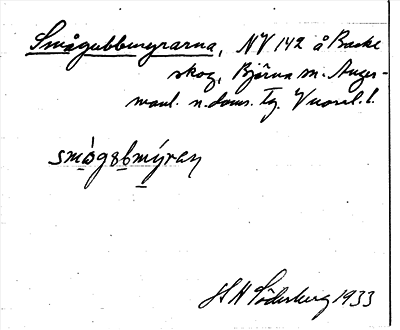 Smågubbmyrarna, NV 142 å Backe
skog, Björna sn. Ånger-
manl. n. doms. Tg. Vnorrl. l.
smågubmýran
S H Söderberg 1933